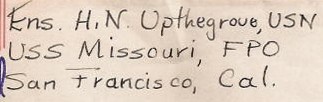 Ens. H.N. Upthegrove, USN
USS Missouri, FPO
San Francisco, Cal.